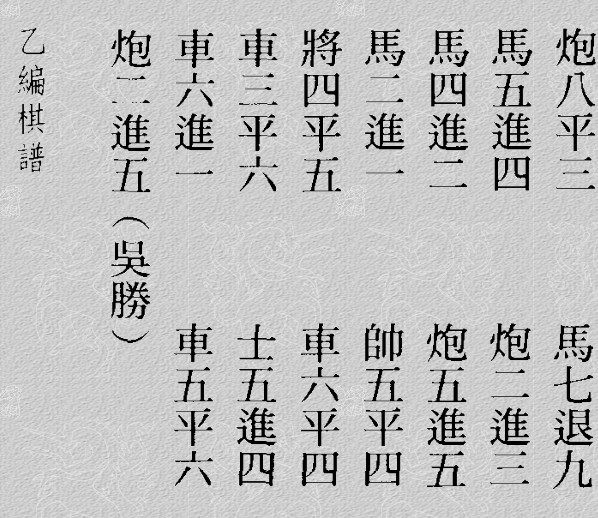 炮八平三　馬七退九
馬五進四　炮二進三
馬四進二　炮五進五
馬二進一　帥五平四
將四平五　車六平四
車三平六　士五進四
車六進一　車五平六
炮二進五（吳勝）
乙編棋譜